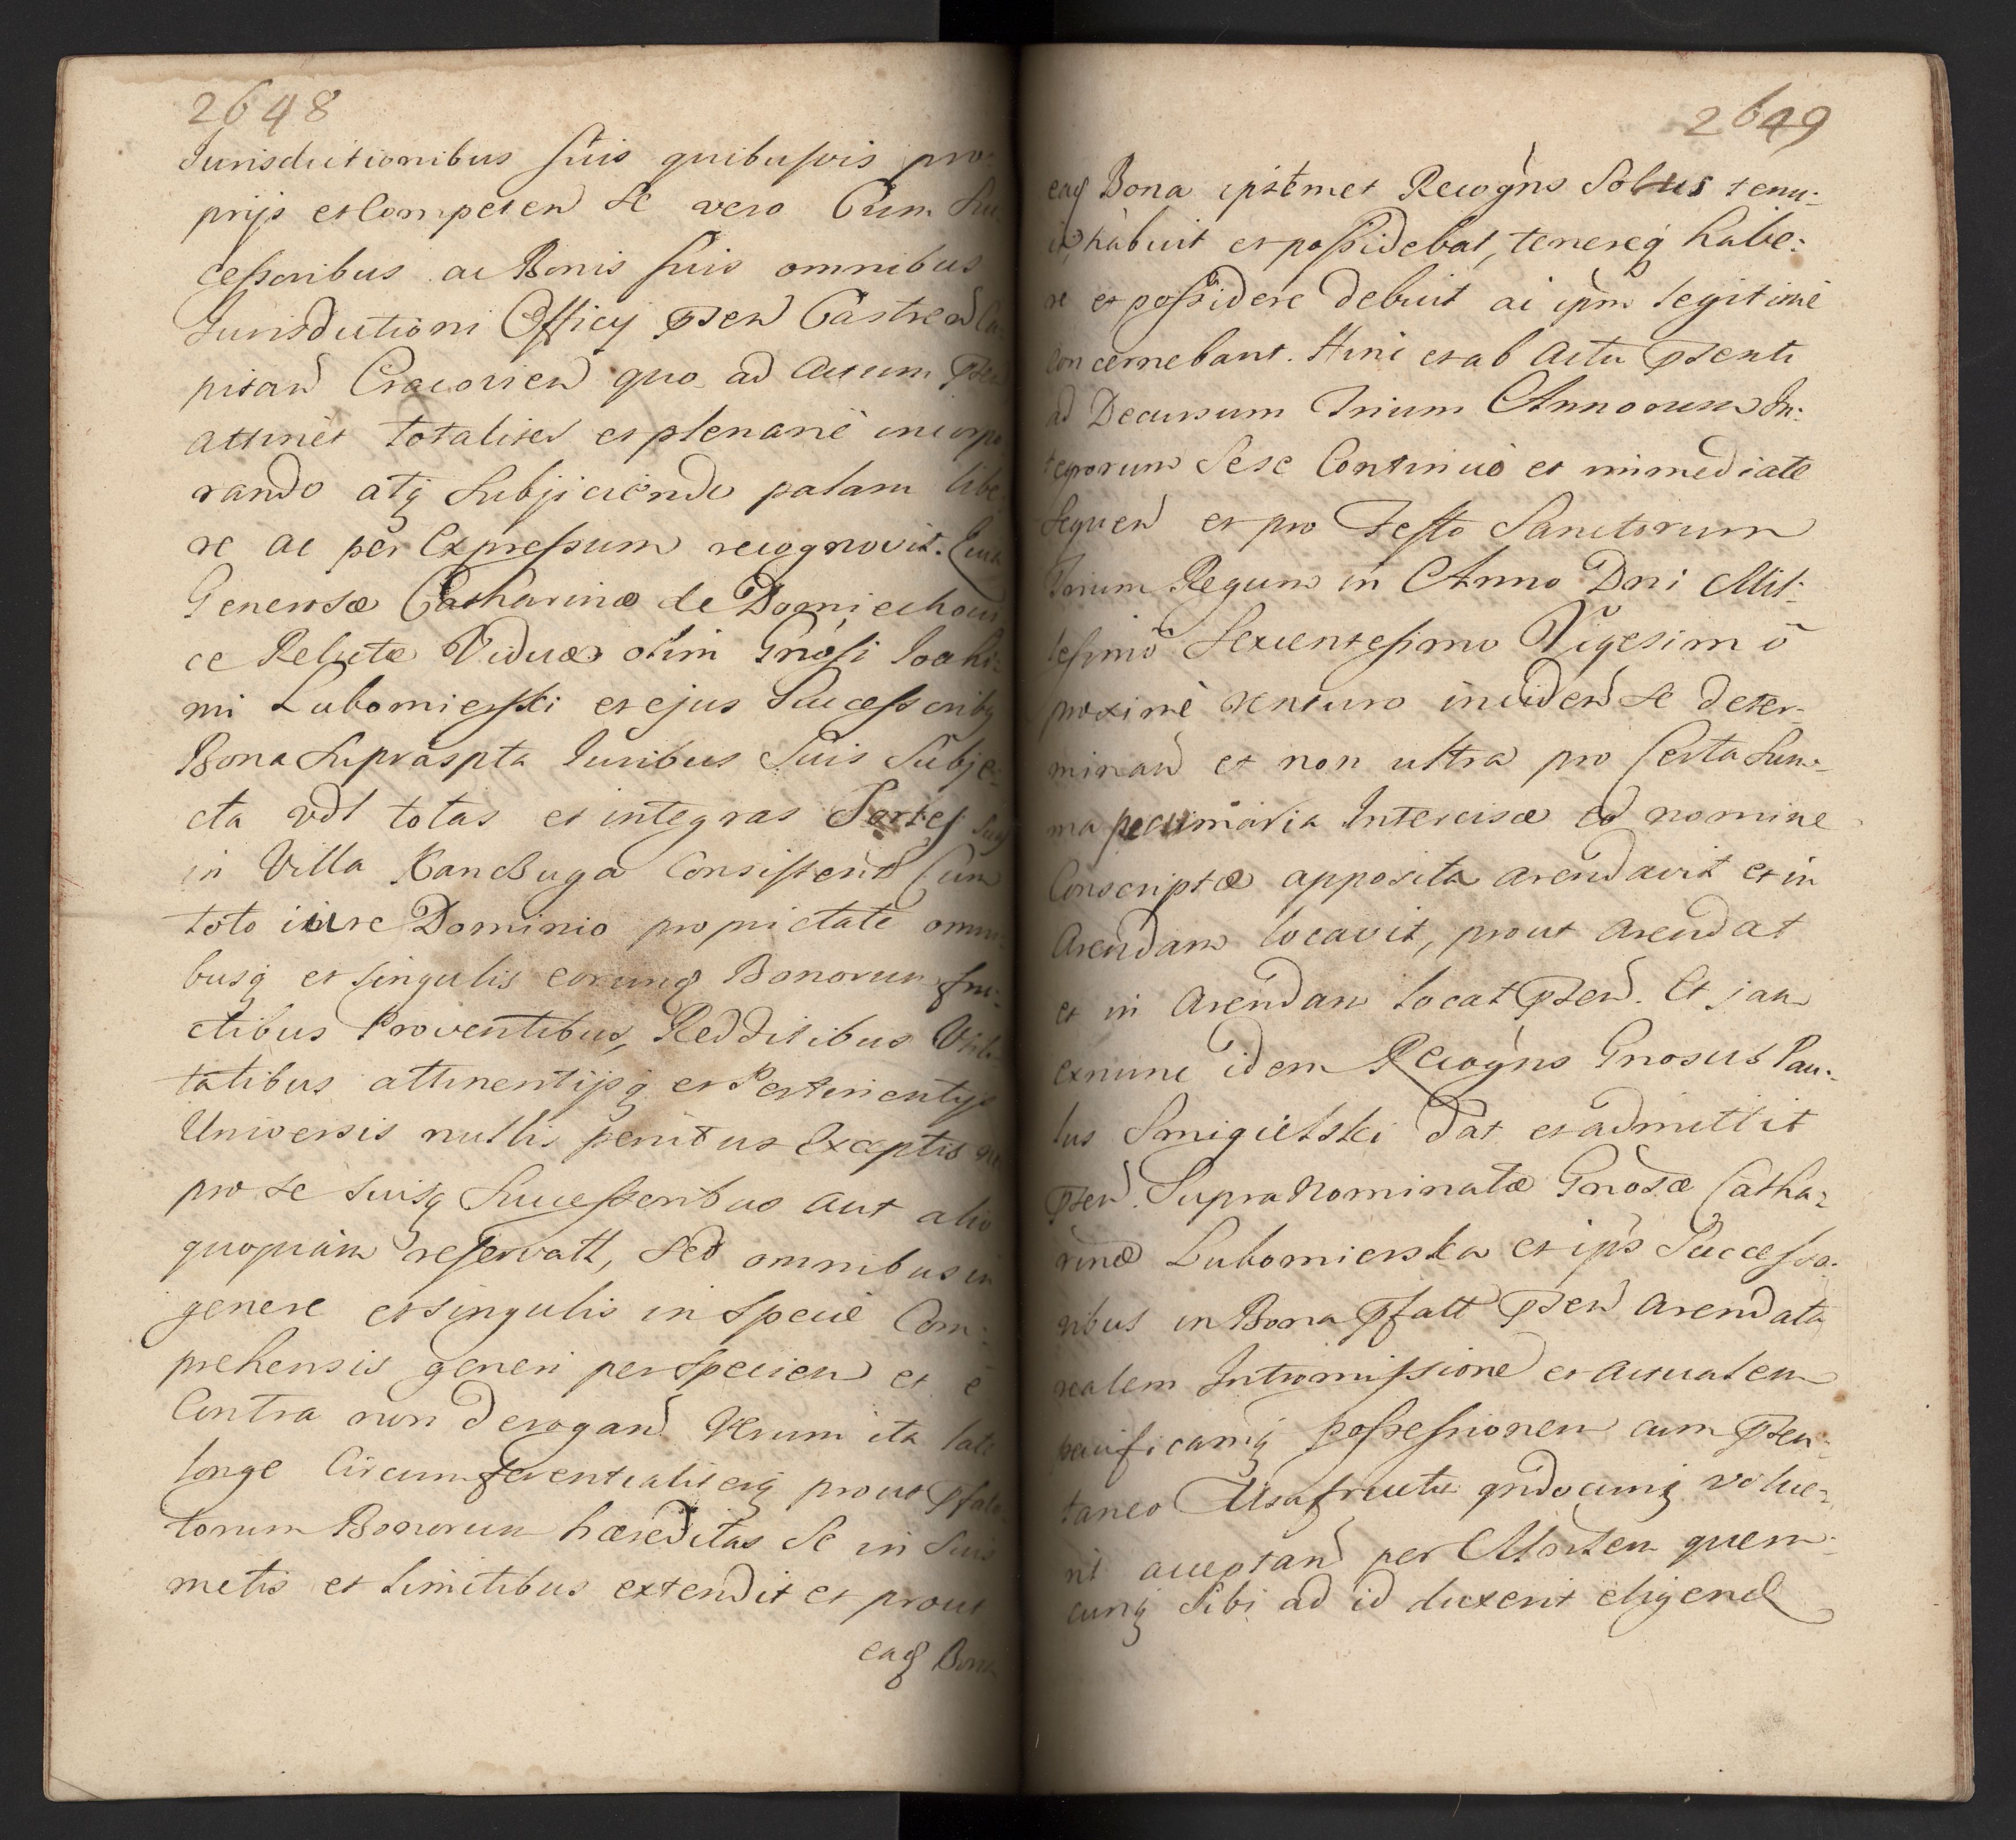 2648
Jurisdictionibus suis quibusvis pro-
prijs et Competen Se vero Cum Suc
cessoribus ac Bonis suis omnibus
Jurisdictioni Officij psen Castren Ca-
pitan Cracovien quo ad Actum psen
attinet totaliter et plenarie incorpo
rando atq Subjiciendo palam libe
re ac per Expressum recognovit. Quia
Generosae Catharinae de Domiechowi
ce Relictae Viduae olim Gnosi Joachi-
mi Lubomierski et ejus Successoribq
Bona Supraspta Juribus Suis Subje-
cta vdt totas et integras Sortes Suas
in Villa Kanczuga Consistent Cum
toto iure Dominio proprietate omni-
busq et singulis eorund Bonorum fru-
ctibus Proventibus, Redditibus Utili-
tatibus attinentijsq et Pertinentijs
Universis nullis penitus Exceptis ne
pro se suisq Successoribus aut alio
quopiam reservatt, Sed omnibus in
genere et singulis in Specie Com-
prehensis generi per Speciem et e
Contra non derogand Verum ita late
longe Circumferentialiterq prout pfala
torum Bonorum haereditas Se in Suis
metis et limitibus extendit et prout
eaq Bona
2649
eaq Bona ipsemet Recogns Solus tenu-
it, habuit et possidebat, tenereq habe-
re et possidere debuit ac ipm legitime
concernebant. Hinc et ab Actu psenti
ad Decursum Trium Annorum In-
tegrorum Sese Continuo et immediate
Sequen et pro Festo Sanctorum
Trium Regum in Anno Dni Mil-
lesimo Sexcentesimo Vigesimo
proxime venturo inciden Se deter-
minan et non ultra pro Certa Sum-
ma pecuniaria Intercisae eo nomine
Conscriptae apposita arendavit et in
Arendam locavit, prout Arendat
et in Arendam locat psen. Et jam
exnunc idem Recogns Gnosus Pau-
lus Smigielski dat et admittit
psen. Supra Nominatae Gnosae Catha-
rinae Lubomierska et ips Successo-
ribus in Bona pfatt psen arendata
realem Intromissione et actualem
pacificamq possessionem cum psen-
taneo Usufructu qndocunq volue-
rit acceptand per Mostem quem-
cunq Sibi ad id duxerit eligend